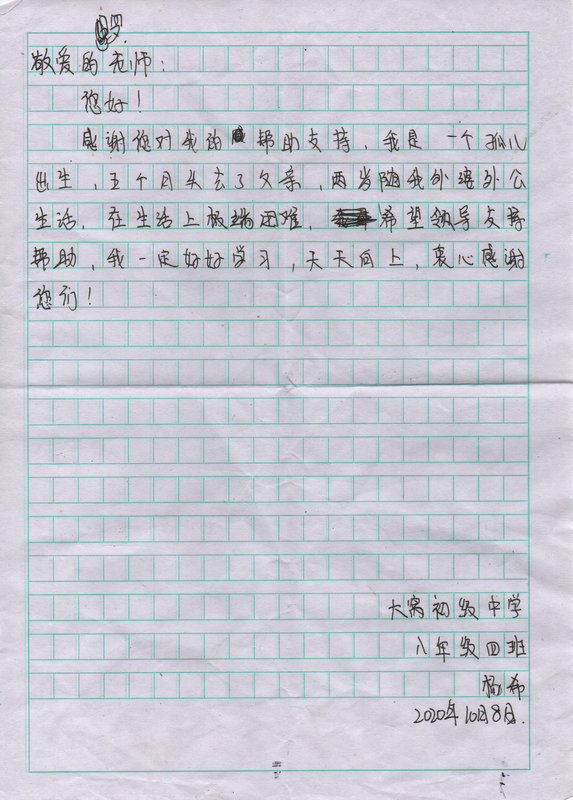 罗
敬爱的老师：
您好！
感谢您对我的帮助支持，我是一个孤儿
出生，五个月失去了父亲，两岁随我外婆外公
生活，在生活上极端困难，希望领导支持
帮助，我一定好好学习，天天向上，衷心感谢
您们！
大窝初级中学
八年级四班
杨希
2020年10月8日.